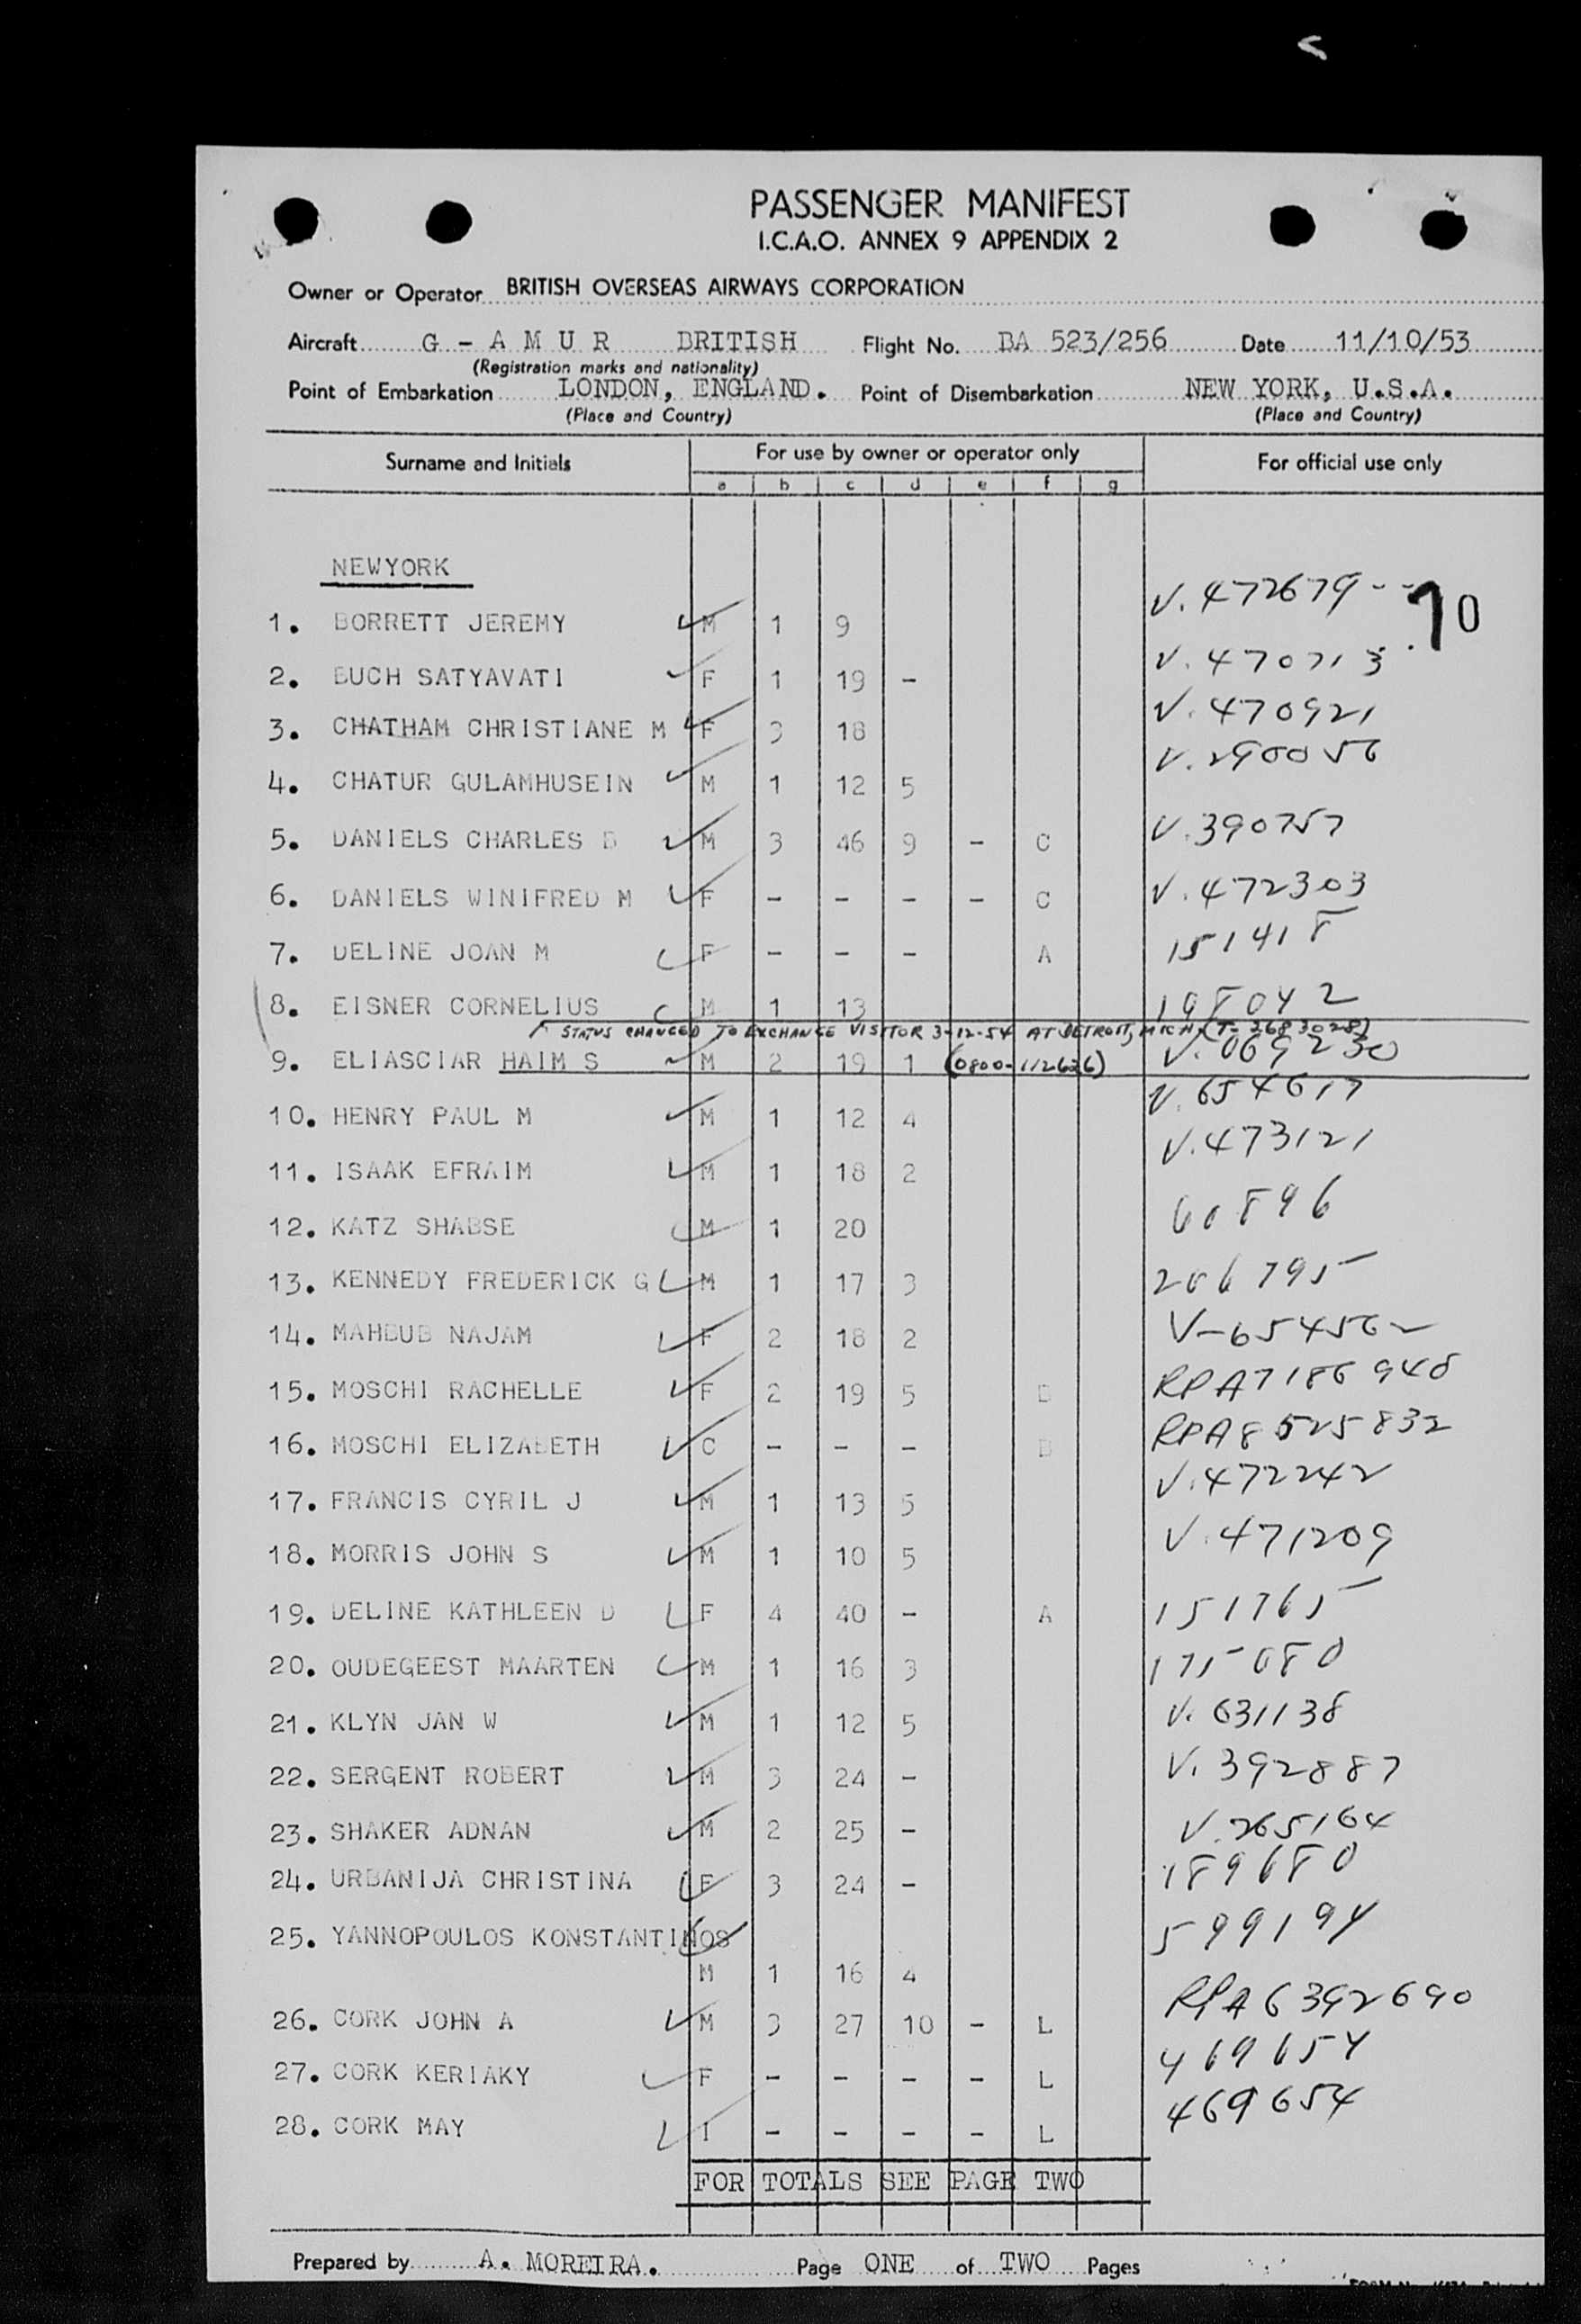 PASSENGER MANIFEST
I.C.A.O. ANNEX 9 APPENDIX 2
Owner or Operator BRITISH OVERSEAS AIRWAYS CORPORATION
Aircraft G - A M U R BRITISH Flight No. BA 523/256 Date 11/10/53
(Registration marks and nationality)
Point of Embarkation LONDON, ENGLAND. Point of Disembarkation NEW YORK, U.S.A.
(Place and Country) (Place and Country)
Surname and Initials For use by owner or operator only For official use only
a b c d e f g
NEWYORK
1. BORRETT JEREMY M 1 9 V. 472679 -- 70
2. BUCH SATYAVATI F 1 19 - V. 470713
3. CHATHAM CHRISTIANE M F 3 18 V. 470921
4. CHATUR GULAMHUSEIN M 1 12 5 V. 290056
5. DANIELS CHARLES B M 3 46 9 - C V. 390757
6. DANIELS WINIFRED M F - - - - C V. 472303
7. DELINE JOAN M F - - - A 151418
8. EISNER CORNELIUS M 1 13 198042
STATUS CHANGED TO EXCHANGE VISITOR 3-12-54 AT DETROIT, MICH. (T-2683028)
9. ELIASCIAR HAIM S M 2 19 1 (0800-112636) V. 069230
10. HENRY PAUL M M 1 12 4 V. 654617
11. ISAAK EFRAIM M 1 18 2 V. 473121
12. KATZ SHABSE M 1 20 60896
13. KENNEDY FREDERICK G M 1 17 3 206795
14. MAHBUB NAJAM F 2 18 2 V-654562
15. MOSCHI RACHELLE F 2 19 5 B RPA7186948
16. MOSCHI ELIZABETH C - - - B RPA8525832
17. FRANCIS CYRIL J M 1 13 5 V. 472242
18. MORRIS JOHN S M 1 10 5 V. 471209
19. DELINE KATHLEEN D F 4 40 - A 151765
20. OUDEGEEST MAARTEN M 1 16 3 175080
21. KLYN JAN W M 1 12 5 V. 631138
22. SERGENT ROBERT M 3 24 - V. 392887
23. SHAKER ADNAN M 2 25 - V. 265164
24. URBANIJA CHRISTINA F 3 24 - 189680
25. YANNOPOULOS KONSTANTINOS 599194
M 1 16 4
26. CORK JOHN A M 3 27 10 - L RPA6392690
27. CORK KERIAKY F - - - - L 469654
28. CORK MAY I - - - - L 469654
FOR TOTALS SEE PAGE TWO
Prepared by A. MOREIRA. Page ONE of TWO Pages